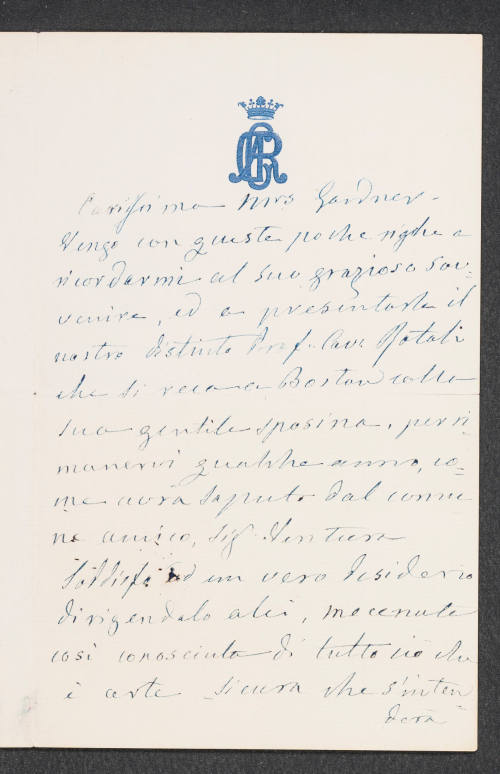 Carissima Mrs Gardner -
Vengo con queste poche righe a
ricordarmi al suo grazioso sov=
venire, ed a presentarle il
nostro distinto Prof. Cav. Rotoli
che si reca a Boston colla
sua gentile sposina, per ri
manervi qualche anno, co=
me avrà saputo dal comu
ne amico, Sig Ventura
Soddisfo ad un vero desiderio
dirigendolo a lei, mecenate
così conosciuta di tutto ciò che
è arte sicura che s'inten
derà